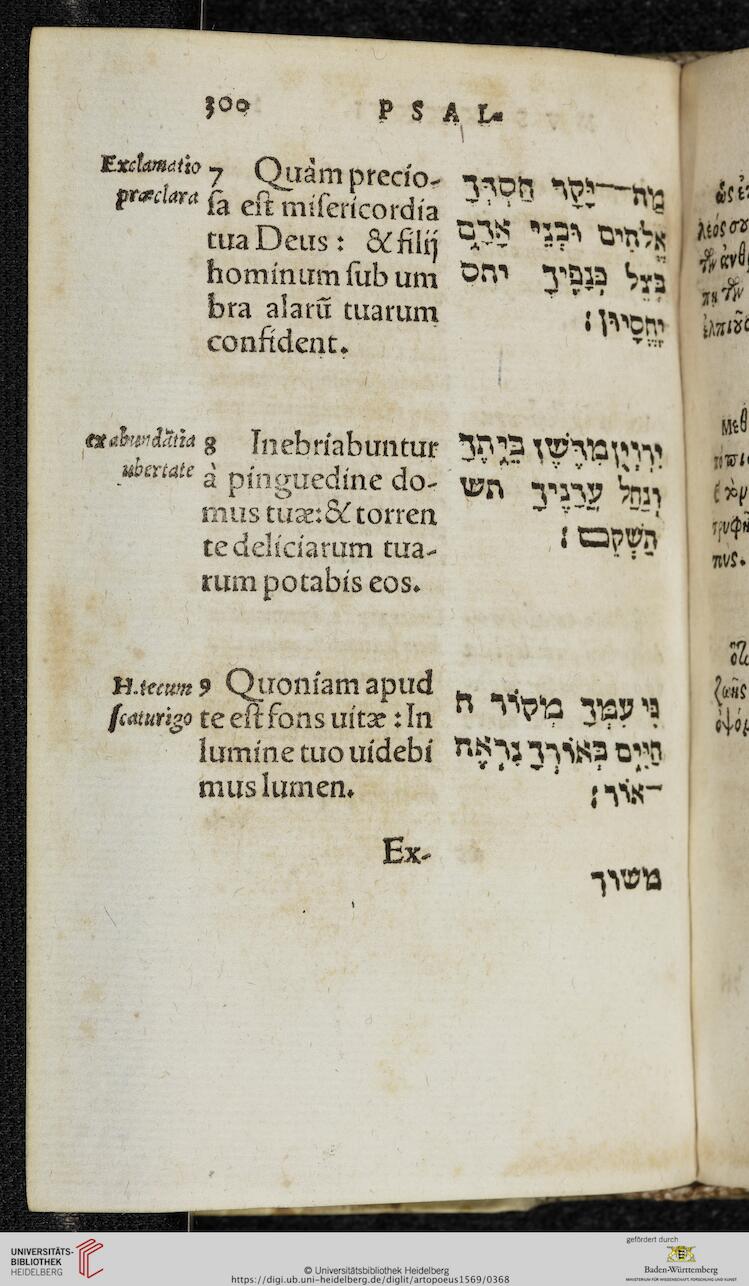 300 PSAL-
Exclamatio
præclara
7 Quàm precio-
sa est misericordia
tua Deus : & filij
hominum sub um
bra alarū tuarum
confident.
מַה־יָּקָר חַסְדְּךָ
אֱלֹהִים וּבְנֵי אָדָם
בְּצֵל כְּנָפֶיךָ יחס
יֶחֱסָיוּן׃
ex abundātia
ubertate
8 Inebriabuntur
à pinguedine do-
mus tuæ: & torren
te deliciarum tua-
rum potabis eos.
יִרְוְיֻן מִדֶּשֶׁן בֵּיתֶךָ
וְנַחַל עֲדָנֶיךָ תש
תַשְׁקֵם׃
H. tecum
scaturigo
9 Quoniam apud
te est fons uitæ : In
lumine tuo uidebi
mus lumen.
כִּי עִמְּךָ מְקוֹר ח
חַיִּים בְּאוֹרְךָ נִרְאֶה
־אוֹר׃
Ex-
משוך
ὡς
λεός σου
πὶ τῶν
Μεθ
πνς.
ζωῆς
UNIVERSITÄTS-
BIBLIOTHEK
HEIDELBERG
© Universitätsbibliothek Heidelberg
https://digi.ub.uni-heidelberg.de/diglit/artopoeus1569/0368
gefördert durch
Baden-Württemberg
MINISTERIUM FÜR WISSENSCHAFT, FORSCHUNG UND KUNST